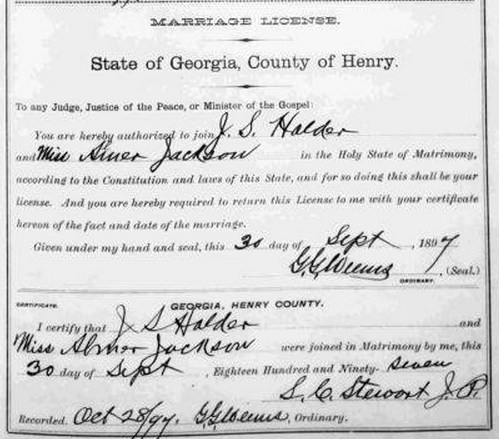 MARRIAGE LICENSE.
State of Georgia, County of Henry.
To any Judge, Justice of the Peace, or Minister of the Gospel:
You are hereby authorized to join J. S. Halder
and Miss Jackson in the Holy State of Matrimony,
according to the Constitution and laws of this State, and for so doing this shall be your
license. And you are hereby required to return this License to me with your certificate
hereon of the fact and date of the marriage.
Given under my hand and seal, this 30 day of Sept, 1897
G.G. Weems, (Seal.)
ORDINARY.
CERTIFICATE. GEORGIA, HENRY COUNTY.
I certify that J S Halder and
Miss Jackson were joined in Matrimony by me, this
30 day of Sept, Eighteen Hundred and Ninety-seven
S. C. Stewart J. P.
Recorded. Oct 28/97. G.G. Weems, Ordinary.